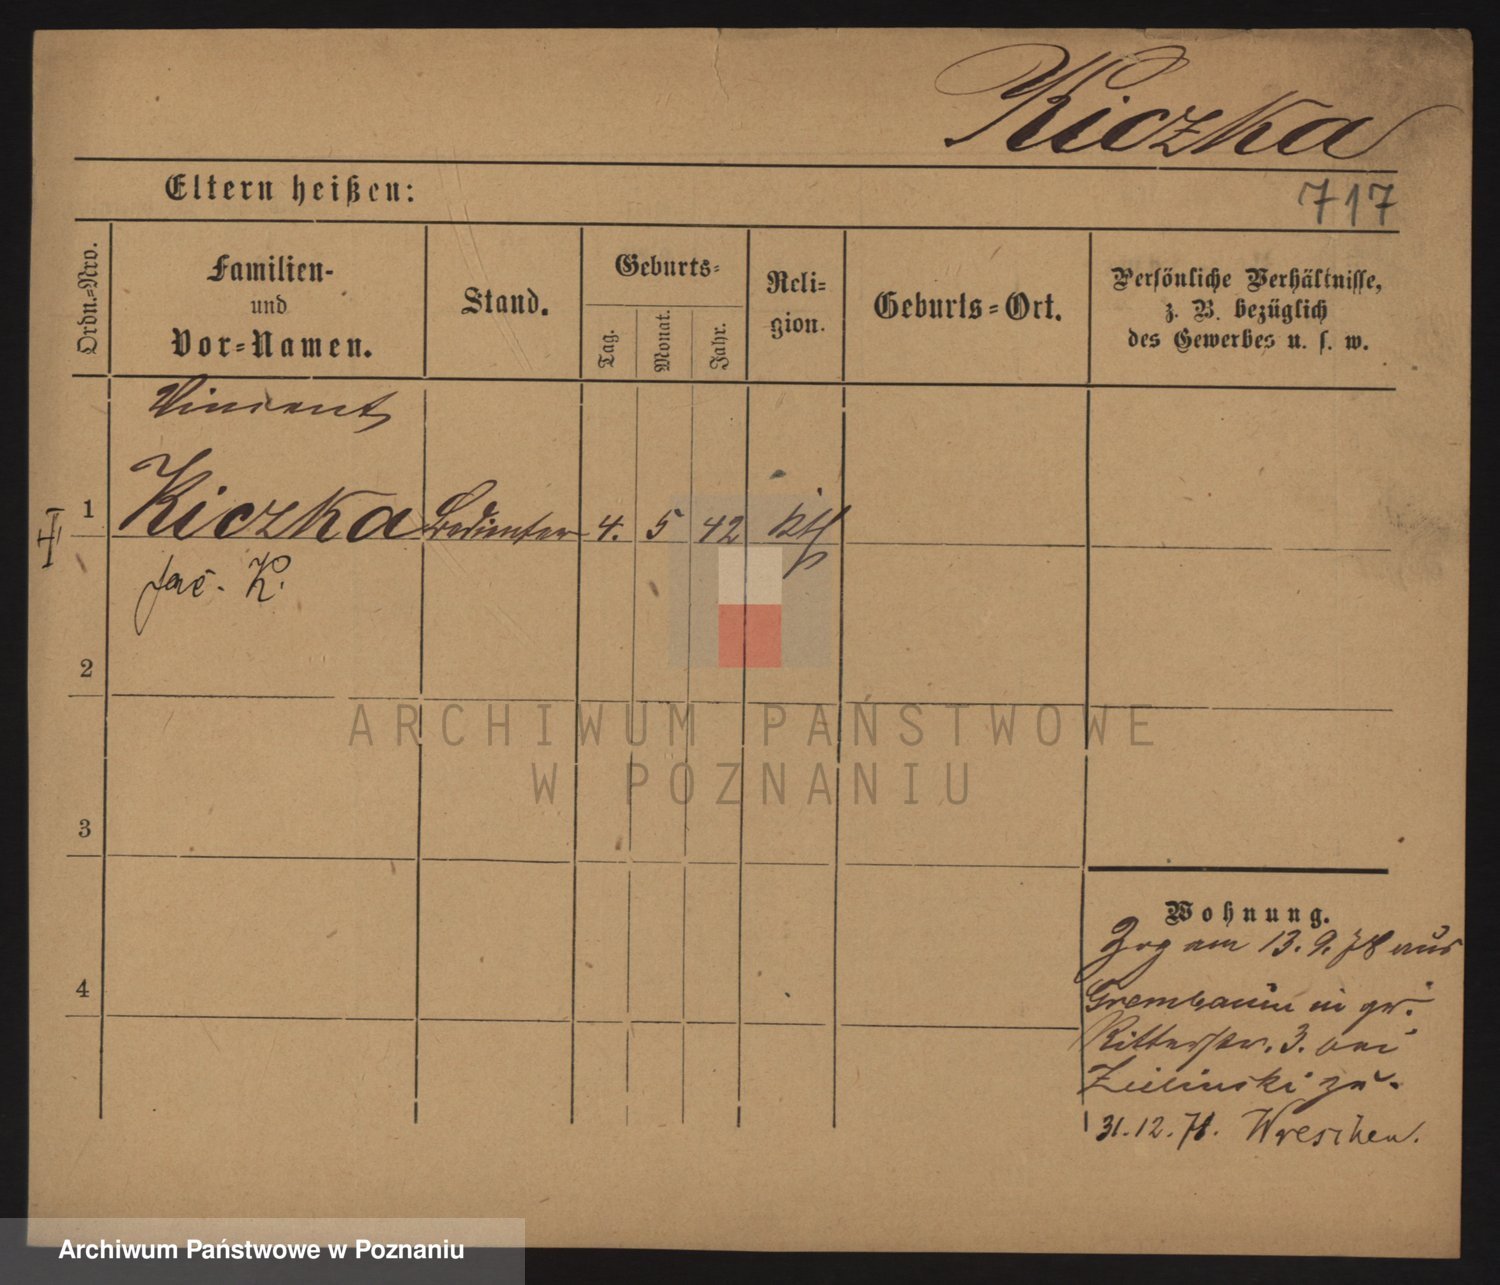 Kiczka
Eltern heißen:
717
Ordn.-Nro.
Familien-
und
Vor-Namen.
Stand.
Geburts-
Tag.
Monat.
Jahr.
Reli-
gion.
Geburts-Ort.
Persönliche Verhältnisse,
z. B. bezüglich
des Gewerbes u. s. w.
Vincent
1 Kiczka Bedienter 4. 5 42 kth
K.
2
ARCHIWUM PAŃSTWOWE
W POZNANIU
3
Wohnung.
Zog am 13. 9. 78 aus
4
in gr.
Ritterstr. 3. bei
Zielinski zu.
31.12.78. Wreschen.
Archiwum Państwowe w Poznaniu